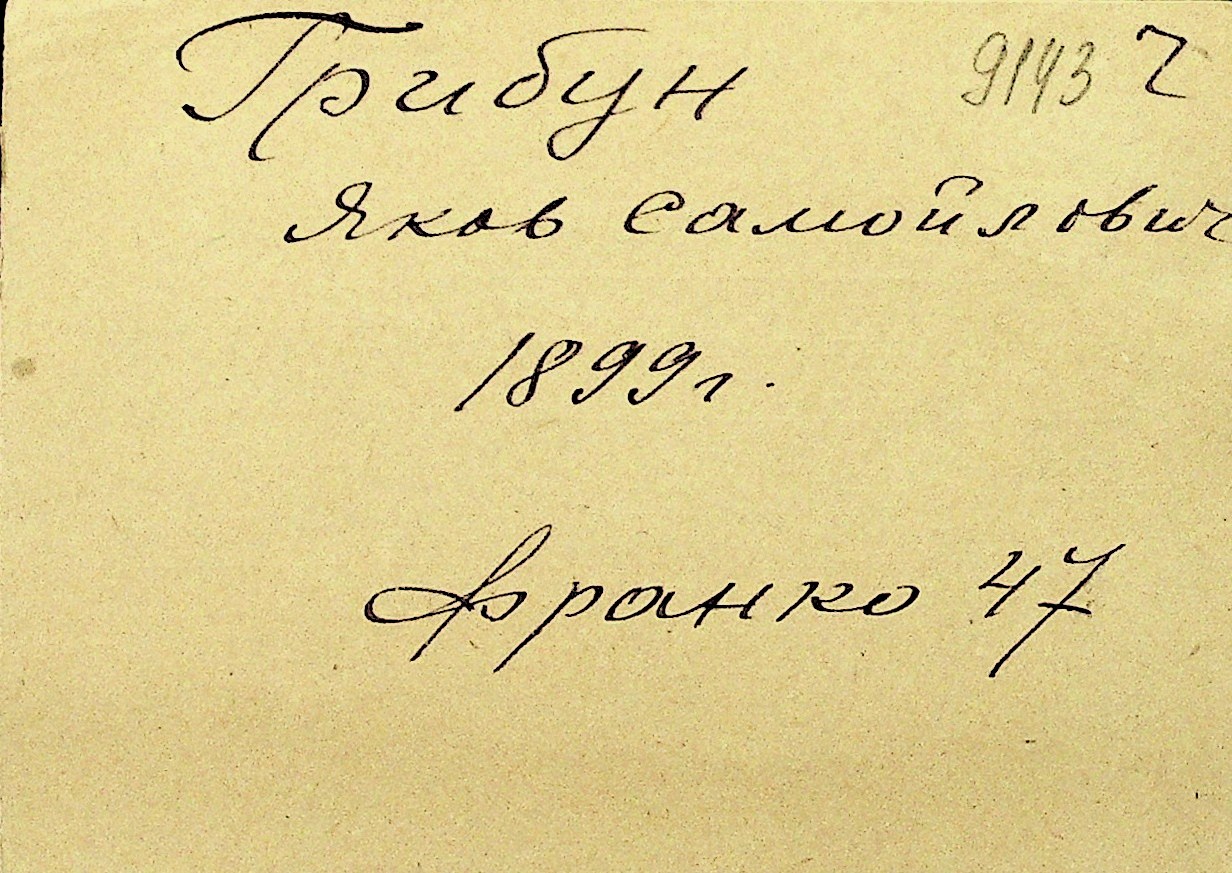 Грибун 9143 ч
Яков Самойлович
1899г.
Франко 47